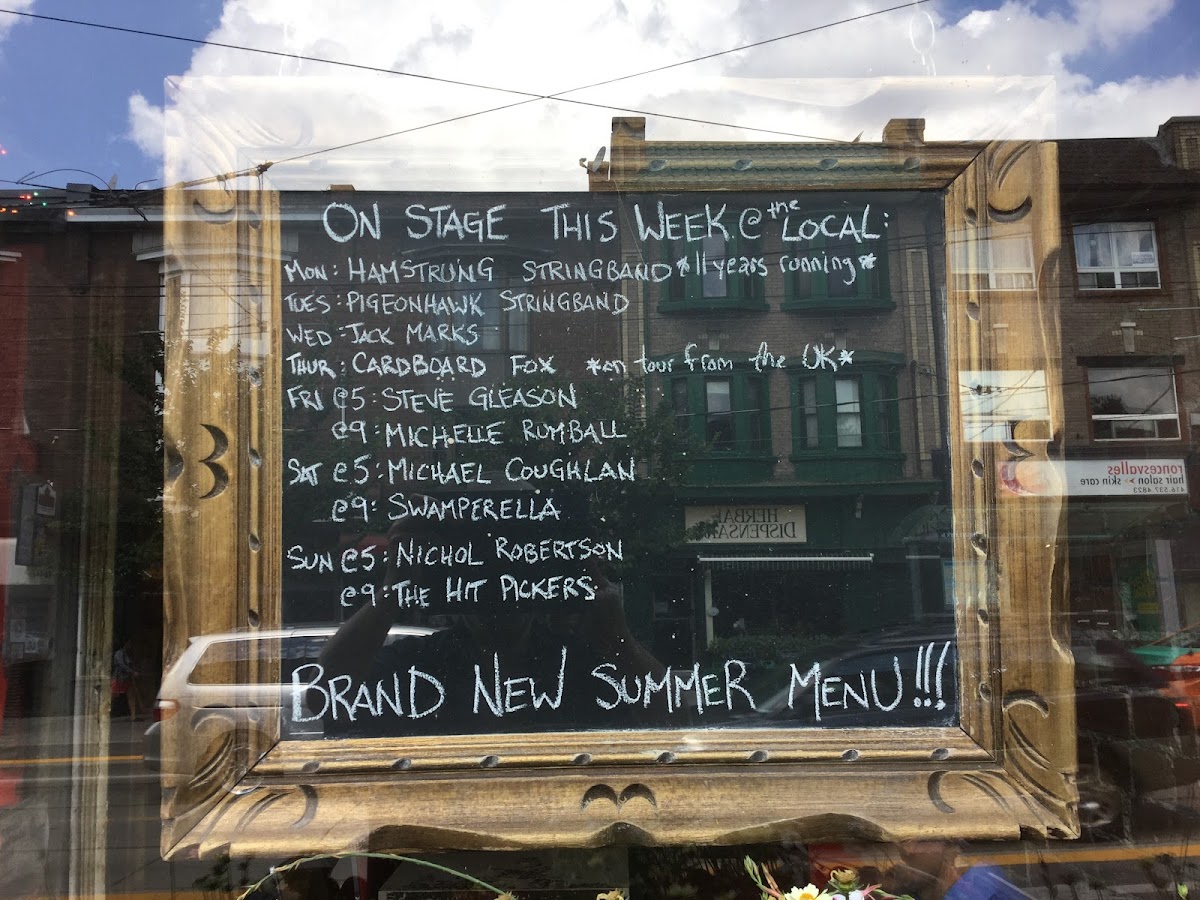 ON STAGE THIS WEEK @ the LOCAL:
MON: HAMSTRUNG STRINGBAND *11 years running*
TUES: PIGEONHAWK STRINGBAND
WED: JACK MARKS
THUR: CARDBOARD FOX *on tour from the UK*
FRI @5: STEVE GLEASON
@9: MICHELLE RUMBALL
SAT @5: MICHAEL COUGHLAN
@9: SWAMPERELLA
SUN @5: NICHOL ROBERTSON
@9: THE HIT PICKERS
BRAND NEW SUMMER MENU!!!
roncesvalles
hair salon > skin care
416.537.4823
HERBAL
DISPENSARY